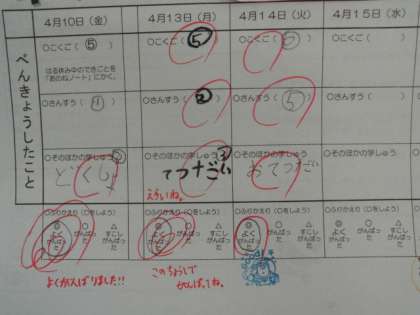 4月10日（金） 4月13日（月） 4月14日（火） 4月15日（水）
べんきょうしたこと
○こくご（⑤） ○こくご（⑤） ○こくご（⑤） ○こくご（ ）
はる休み中のできごとを
「あのねノート」にかく。
○さんすう（④） ○さんすう（②） ○さんすう（⑤） ○さんすう（ ）
○そのほかの学しゅう ○そのほかの学しゅう ○そのほかの学しゅう ○そのほかの学しゅう
どくしょ てつだい おてつだい
えらいね。
○ふりかえり（○をしよう） ○ふりかえり（○をしよう） ○ふりかえり（○をしよう） ○ふりかえり（○をしよう）
◎ ○ △ ◎ ○ △ ◎ ○ △ ◎ ○ △
よくがんばった がんばった すこしがんばった よくがんばった がんばった すこしがんばった よくがんばった がんばった すこしがんばった よく がんばった
よくがんばりました!!
このちょうしで
がんばってね。